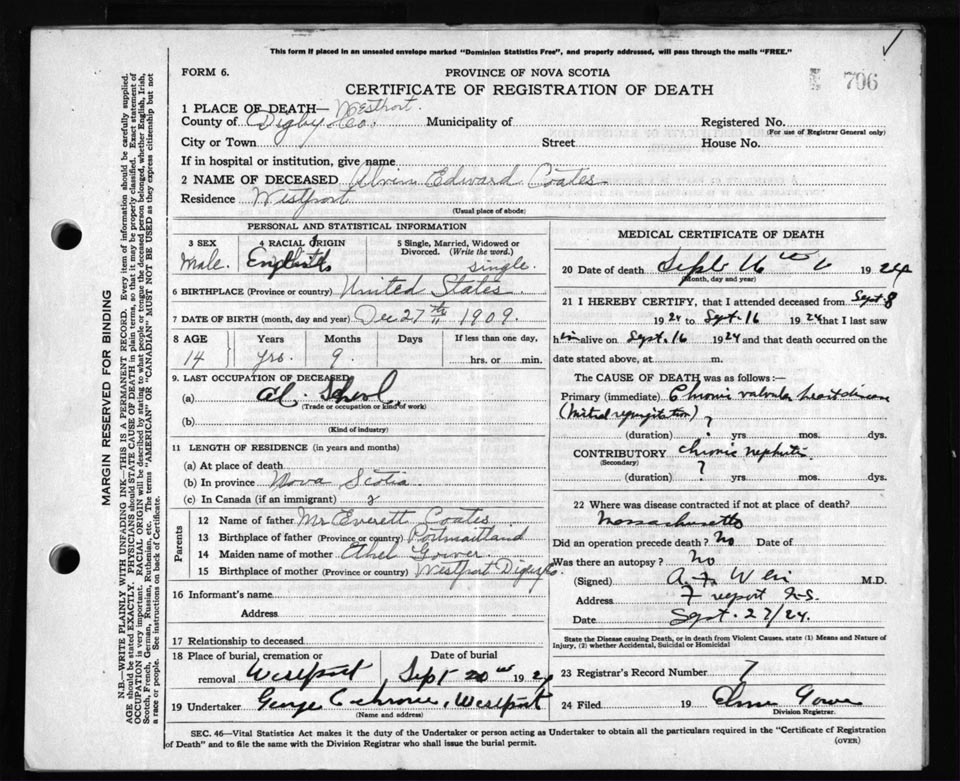 This form if placed in an unsealed envelope marked "Dominion Statistics Free", and properly addressed, will pass through the mails "FREE."
FORM 6.
PROVINCE OF NOVA SCOTIA
706
CERTIFICATE OF REGISTRATION OF DEATH
1 PLACE OF DEATH— Westport.
County of Digby Co. Municipality of Registered No.
(For use of Registrar General only)
City or Town Street House No.
If in hospital or institution, give name
2 NAME OF DECEASED Alvin Edward Coates.
Residence Westport
(Usual place of abode)
PERSONAL AND STATISTICAL INFORMATION
3 SEX 4 RACIAL ORIGIN 5 Single, Married, Widowed or Divorced. (Write the word.)
Male. English single.
6 BIRTHPLACE (Province or country) United States.
7 DATE OF BIRTH (month, day and year) Dec 27th 1909.
8 AGE Years Months Days If less than one day,
14 yrs. 9. hrs. or min.
9. LAST OCCUPATION OF DECEASED
(a) At School
(Trade or occupation or kind of work)
(b)
(Kind of industry)
11 LENGTH OF RESIDENCE (in years and months)
(a) At place of death
(b) In province Nova Scotia
(c) In Canada (if an immigrant)
Parents
12 Name of father Mr Everett Coates.
13 Birthplace of father (Province or country) Portmaitland
14 Maiden name of mother Ethel Gower.
15 Birthplace of mother (Province or country) Westport Digby Co.
16 Informant's name
Address
17 Relationship to deceased
18 Place of burial, cremation or removal Westport Date of burial Sept 20 1924
19 Undertaker George Cochrane, Westport
(Name and address)
MEDICAL CERTIFICATE OF DEATH
20 Date of death Sept 16th 1924
(Month, day and year)
21 I HEREBY CERTIFY, that I attended deceased from Sept 8
1924 to Sept. 16 1924 that I last saw
him alive on Sept. 16 1924 and that death occurred on the
date stated above, at m.
The CAUSE OF DEATH was as follows:—
Primary (immediate) Chronic valvular heart disease
(Mitral regurgitation)
(duration) ? yrs mos. dys.
CONTRIBUTORY chronic nephritis
(Secondary)
(duration) ? yrs. mos. dys.
22 Where was disease contracted if not at place of death?
Massachusetts
Did an operation precede death? No Date of
Was there an autopsy? No
(Signed) A. F. Weir M.D.
Address Freeport N.S.
Date Sept. 27/24.
State the Disease causing Death, or in death from Violent Causes, state (1) Means and Nature of Injury, (2) whether Accidental, Suicidal or Homicidal
23 Registrar's Record Number 7
24 Filed 19
Division Registrar.
SEC. 46—Vital Statistics Act makes it the duty of the Undertaker or person acting as Undertaker to obtain all the particulars required in the "Certificate of Registration
of Death" and to file the same with the Division Registrar who shall issue the burial permit. (OVER)
MARGIN RESERVED FOR BINDING
N.B.—WRITE PLAINLY WITH UNFADING INK—THIS IS A PERMANENT RECORD. Every item of information should be carefully supplied.
AGE should be stated EXACTLY. PHYSICIANS should STATE CAUSE OF DEATH in plain terms, so that it may be properly classified. Exact statement of
OCCUPATION is very important. RACIAL ORIGIN will be described by stating to what people or tongue the deceased person belonged, whether English, Irish,
Scotch, French, German, Russian, Ruthenian, etc. The terms "AMERICAN" or "CANADIAN" MUST NOT BE USED as they express citizenship but not
a race or people. See instructions on back of Certificate.